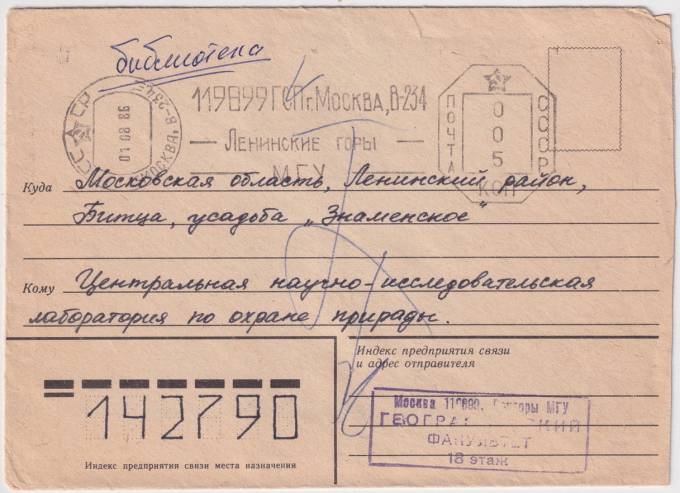 библиотека
119899 ГСП г. Москва, В-234
Ленинские горы
МГУ
01 08 86
МОСКВА, В-234
ПОЧТА
СССР
005
КОП
Куда Московская область, Ленинский район,
Битца, усадьба „Знаменское"
Кому Центральная научно-исследовательская
лаборатория по охране прирады.
Индекс предприятия связи
и адрес отправителя
142790
Индекс предприятия связи места назначения
Москва МГУ
ФАКУЛЬТЕТ
18 этаж